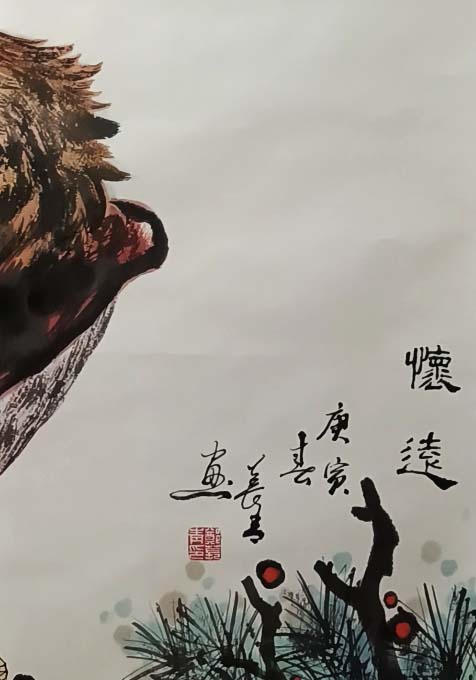 懷遠
庚寅
春
善青
画